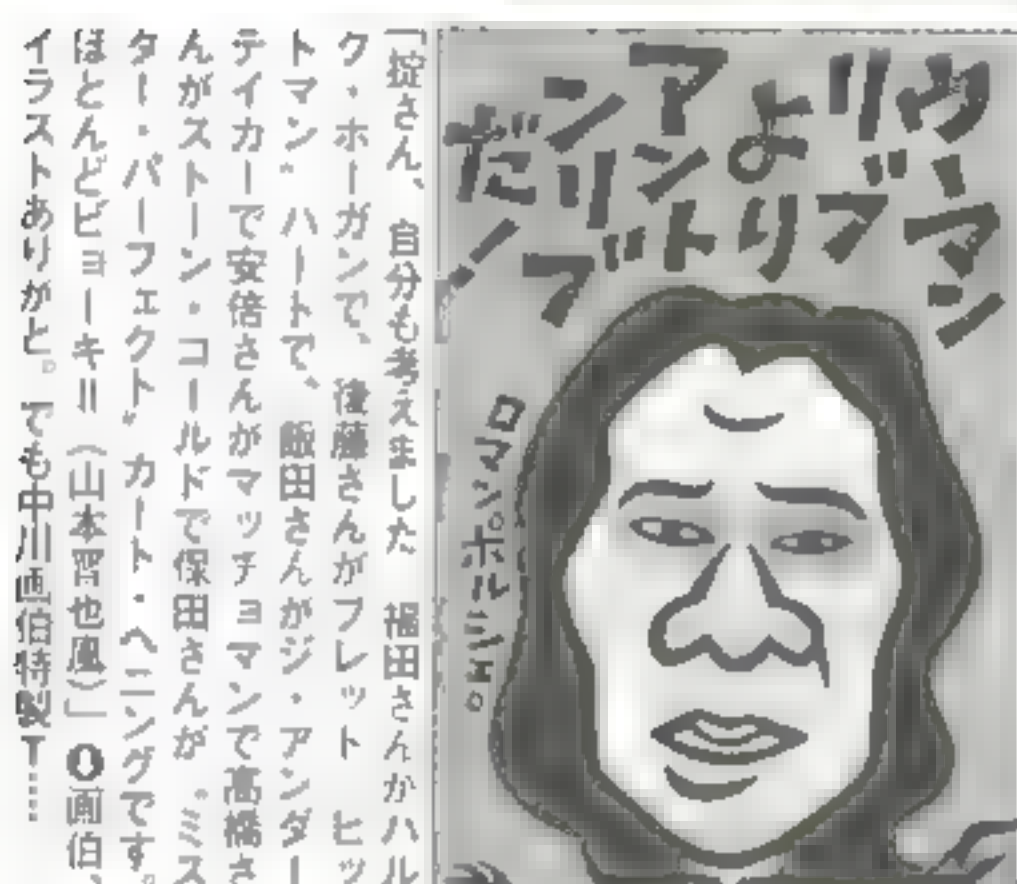 ウーマン
リブ
より
アント
ンリブ
だ!
ロマンポルシェ。
「掟さん、自分も考えました 福田さんがハル
ク・ホーガンで、後藤さんがブレット ヒッ
トマン〟ハートで、飯田さんがジ・アンダー
テイカーで安倍さんがマッチョマンで高橋さ
んがストーン・コールドで保田さんが〝ミス
ター・パーフェクト〟カート・ヘニングです。
ほとんどビョーキ=(山本晋也風)」⬇画伯、
イラストありがと。でも中川画伯特製T……